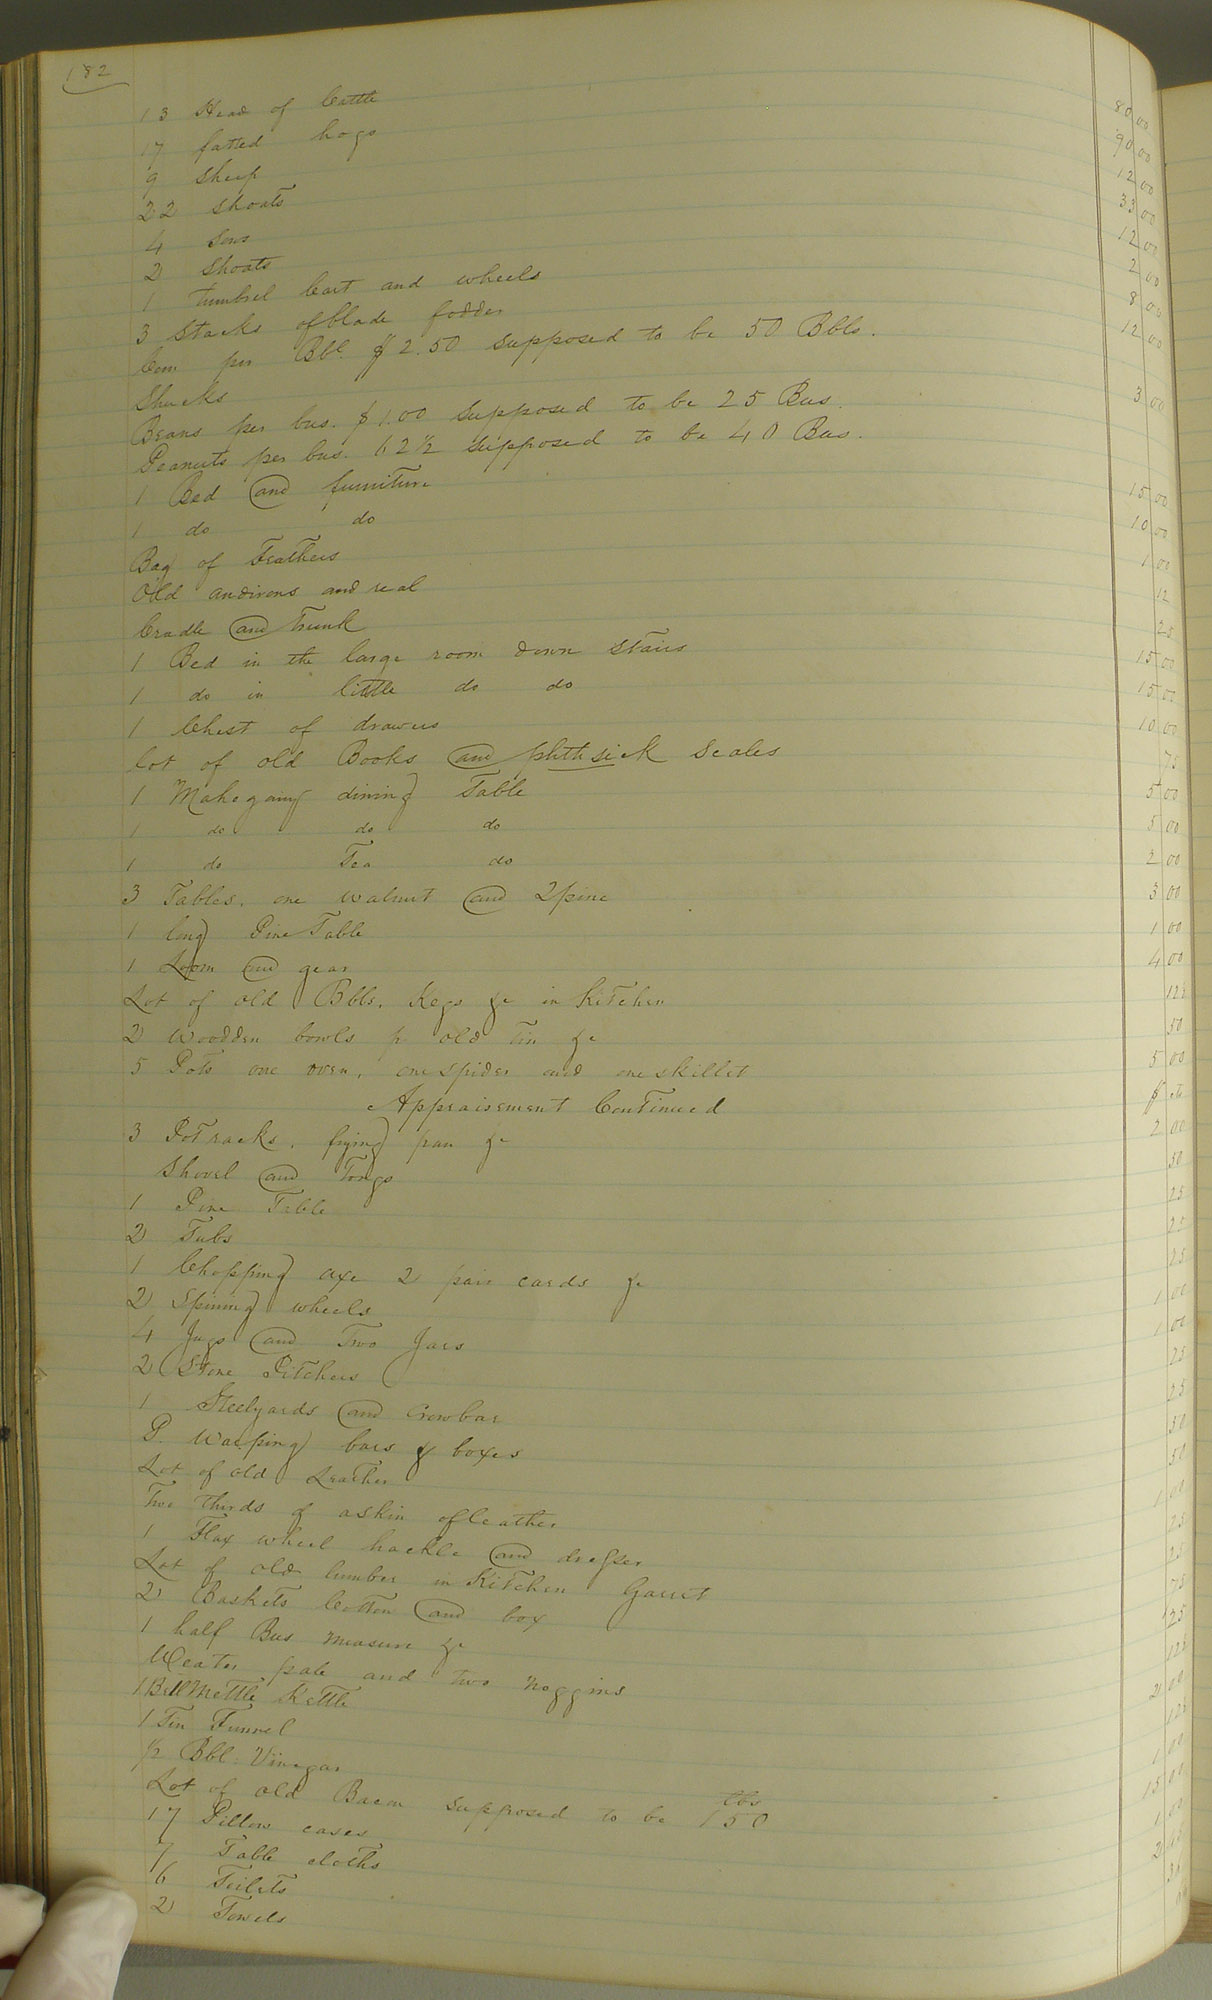 182
13 Head of Cattle 80 00
17 fatted hogs 90 00
9 Sheep 12 00
22 Shoats 33 00
4 Sows 12 00
2 Shoats 2 00
1 tumbrel Cart and wheels 8 00
3 Stacks of blade fodder 12 00
Corn per Bbl. $2.50 Supposed to be 50 Bbls.
Shucks 3 00
Beans per bus. $1.00 Supposed to be 25 Bus.
Peanuts per bus. 62½ Supposed to be 40 Bus.
1 Bed and furniture 15 00
1 do do 10 00
Bag of Feathers 1 00
Old andirons and real 12
Cradle and Trunk 25
1 Bed in the large room down Stairs 15 00
1 do in little do do 15 00
1 Chest of drawers 10 00
Lot of old Books and phthsick Scales 75
1 Mahogany dining Table 5 00
1 do do do 5 00
1 do Tea do 2 00
3 Tables, one walnut and 2 pine 3 00
1 long Pine Table 1 00
1 Loom and gear 4 00
Lot of old Bbls. Kegs &c in Kitchen 12½
2 Wooden bowls p old Tin &c 50
5 Pots one oven, one spider and one skillet 5 00
Appraisement Continued $ cts
3 Pot racks, frying pan &c 2 00
Shovel and Tongs 50
1 Pine Table 25
2 Tubs 25
1 Chopping axe 2 pair cards &c 25
2 Spining wheels 1 00
4 Jugs and Two Jars 1 00
2 Stone Pitchers 25
1 Steelyards and Crowbar 25
P. Warping bars & boxes 50
Lot of old Leather 50
Two thirds of a skin of leather 1 00
1 Flax wheel hackle and dresser 25
Lot of old lumber in Kitchen Garret 25
2 Baskets Cotton and box 75
1 half Bus measure &c 25
Weater pale and two noggins 12½
1 Bell Mettle Kettle 2 00
1 Tin Funnel 12½
½ Bbl. Vinegar 1 00
Lot of old Bacon Supposed to be 150 lbs 15 00
17 Pillow cases 1 00
7 Table cloths 2
6 Toilets
2 Towels